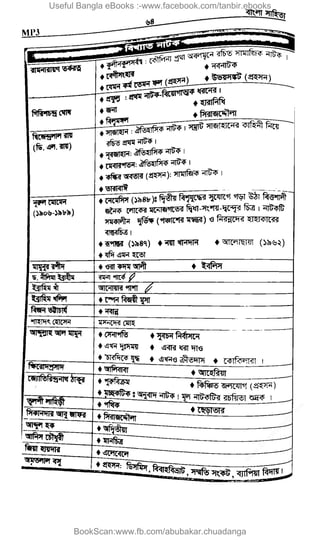 Useful Bangla eBooks :-www.facebook.com/tanbir.ebooks
বাংলা সাহিত্য
৬৪
MP3
বিখ্যাত নাটক
রামনারায়ণ তর্করত্ন
♦ কুলীনকুলসর্বস্ব : কৌলিন্য প্রথা অবলম্বনে রচিত সামাজিক নাটক ।
♦ বেণীসংহার ♦ নবনাটক
♦ যেমন কর্ম তেমন ফল (প্রহসন) ♦ উভয়সঙ্কট (প্রহসন)
গিরিশচন্দ্র ঘোষ
♦ প্রফুল্ল : প্রথম নাটক-বিয়োগান্তক ধরনের ।
♦ জনা ♦ হারানিধি
♦ বিল্বমঙ্গল ♦ সিরাজদ্দৌলা
দ্বিজেন্দ্রলাল রায়
(ডি. এল. রায়)
♦ সাজাহান : ঐতিহাসিক নাটক । সম্রাট সাজাহানের কাহিনী নিয়ে
রচিত প্রথম নাটক ।
♦ নূরজাহান: ঐতিহাসিক নাটক ।
♦ মেবারপতন: ঐতিহাসিক নাটক ।
♦ কল্কি অবতার (প্রহসন): সামাজিক নাটক ।
♦ তারাবাঈ
নূরুল মোমেন
(১৯০৬-১৯৮৯)
♦ নেমেসিস (১৯৪৮): দ্বিতীয় বিশ্বযুদ্ধের সুযোগে গড়ে উঠা বিত্তশালী
জনৈক লোকের মনোজগতের দ্বিধা-সংশয়-দ্বন্দ্বের চিত্র । নাটকটি
সমকালীন দুর্ভিক্ষ (পঞ্চাশের মন্বন্তর) ও নিরন্নদের হাহাকারের
বাস্তবচিত্র ।
♦ রূপান্তর (১৯৪৭) ♦ নয়া খান্দান ♦ আলোছায়া (১৯৬২)
♦ যদি এমন হতো
মামুনুর রশীদ
♦ ওরা কদম আলী ♦ ইবলিস
ড. নীলিমা ইব্রাহীম
রমনা পার্কে
ইব্রাহীম খাঁ
আনোয়ার পাশা
ইব্রাহীম খলিল
♦ স্পেন বিজয়ী মুসা
বিজন ভট্টাচার্য
♦ নবান্ন
শাহাদাৎ হোসেন
মসনদের মোহ
আব্দুল্লাহ আল মামুন
♦ সেনাপতি ♦ সুবচন নির্বাসনে
♦ এখন দুঃসময় ♦ এবার ধরা দাও
♦ চারদিকে যুদ্ধ ♦ এখনও ক্রীতদাস ♦ কোকিলারা ।
ক্ষিরোদপ্রসাদ
♦ আলিবাবা ♦ আহেরিয়া
জ্যোতিরিন্দ্রনাথ ঠাকুর
♦ পুরুবিক্রম ♦ কিঞ্চিত জলযোগ (প্রহসন)
♦ মৃচ্ছকটিক : অনুবাদ নাটক । মূল নাটকটির রচয়িতা শুদ্রক ।
তুলসী লাহিড়ী
♦ পথিক ♦ ছেঁড়াতার
সিকানদার আবু জাফর
♦ সিরাজদ্দৌলা
আব্দুল হক
♦ অদ্বিতীয়া
আনিস চৌধুরী
♦ মানচিত্র
জিয়া হায়দার
♦ এলেবেলে
অমৃতলাল বসু
♦ প্রহসন: ডিসমিস, বিবাহবিভ্রাট, সম্মতি সংকট, ব্যাপিকা বিদায় ।
BookScan:www.fb.com/abubakar.chuadanga